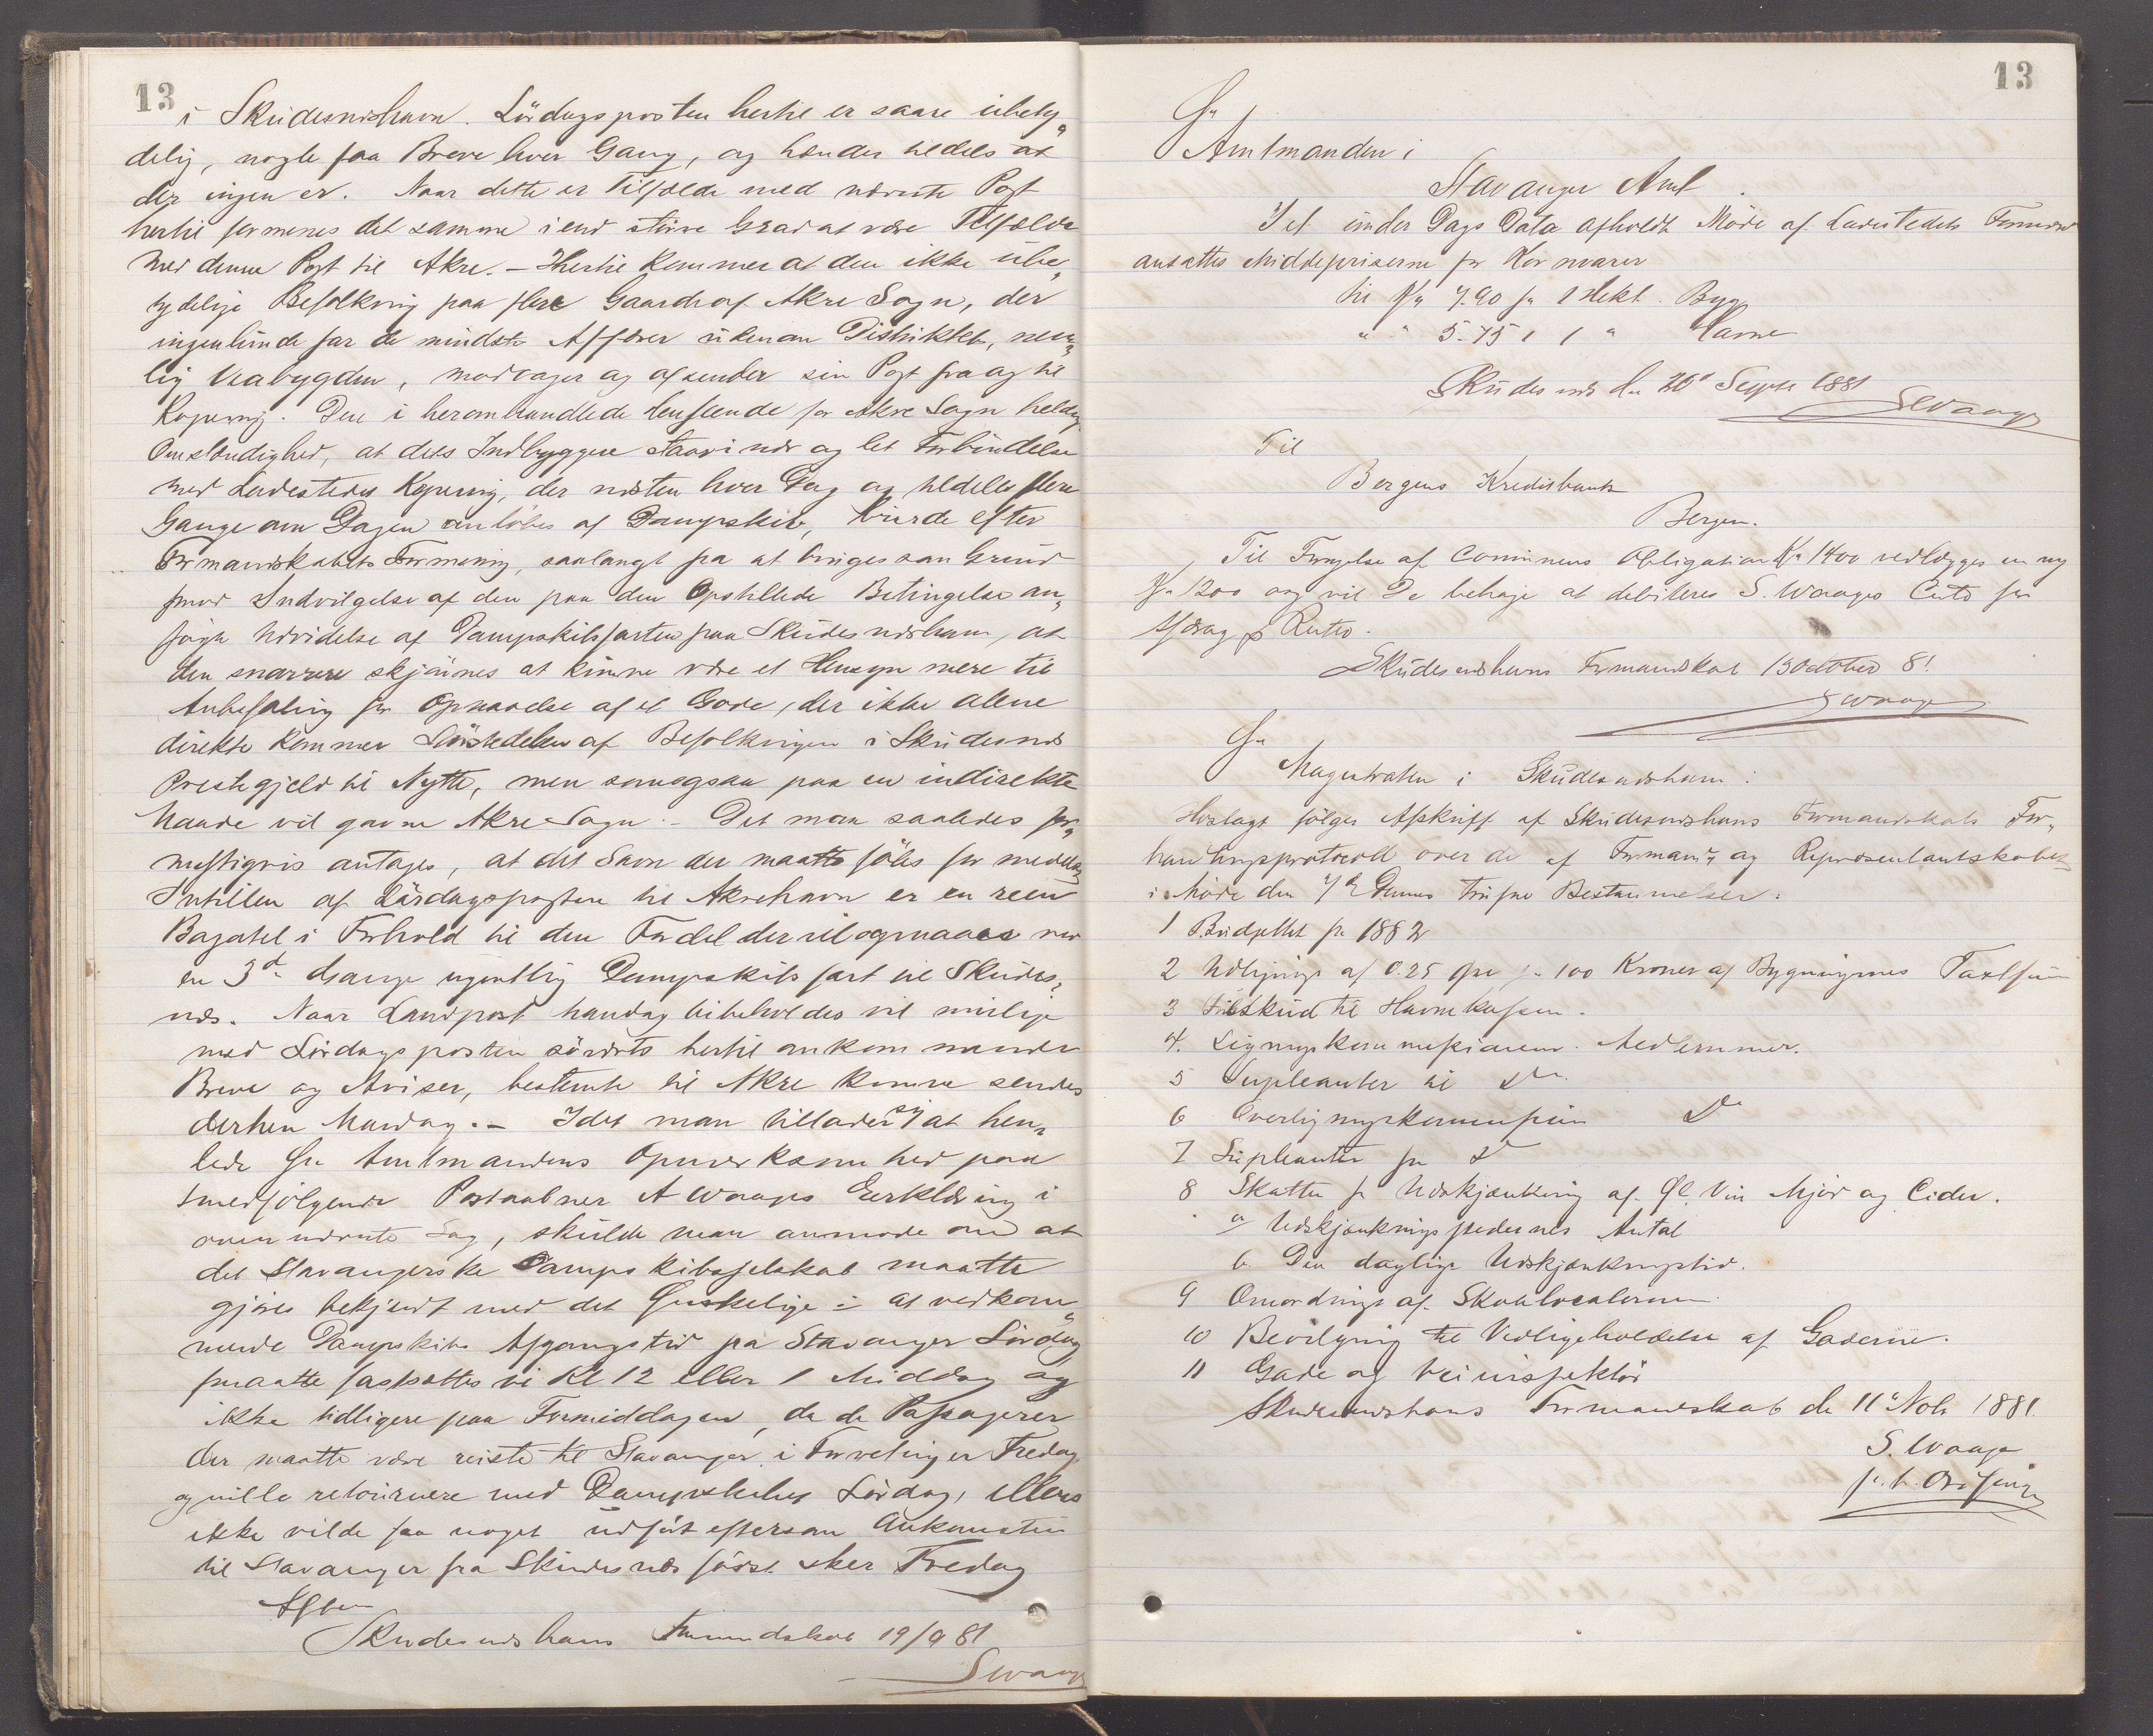 13
i Skudesnæshavn. Lördagsposten hertil er saare ubety„
delig, nogle faa Breve hver Gang, og hænder tildels at
der ingen er. Naar dette er Tilfælde med nævnte Post
hertil formenes det samme i end större Grad at være Tilfælde
med denne Post til Akre. – Hertil kommer at den ikke ube„
tydelige Befolkning paa flere Gaarde af Akre Sogn, der
ingenlunde har de mindste Affærer udenom Distriktet, nem„
lig Veabygden, modtager og afsender sin Post fra og til
Kopervig. Den i heromhandlede Henseende for Akre Sogn heldige
Omstændighed, at dets Indbyggere staar i nær og let Forbindelse
med Ladestedet Kopervig, der næsten hver Dag og tildels flere
Gange om Dagen anlöbes af Dampskib, burde efter
Formandskabets Formening, saalangt fra at bruges som Grund
mod Indvilgelse af den paa den Opstillede Betingelse an„
søgte Udvidelse af Dampskibsfarten paa Skudesnæshavn, at
den snarere skjönnes at kunne være et Hensyn mere til
Anbefaling for Opnaaelse af et Gode, der ikke alene
direkte kommer Störstedelen af Befolkningen i Skudesnæs
Prestegjeld til Nytte, men som ogsaa paa en indirekte
Maade vil gavne Akre Sogn. – Det maa saaledes for„
nuftigvis antages, at det Savn der maatte föles for
Indstillen af Lördagsposten til Akrehavn er en reen
Bagatel i Forhold til den Fordel der vil opnaaes ved
en 3de Gange ugentlig Dampskibsfart til Skudes„
næs. Naar Landpost Mandag bibeholdes vil mulige
med Lördagsposten söndrefra hertil ankommende
Breve og Aviser, bestemte til Akre kunne sendes
derhen Mandag. – Idet man tillader sig at hen„
lede Hr Amtmandens Opmærksomhed paa
medfölgende Postaabner A Waages Erklæring i
ovennævnte Sag, skulde man anmode om at
det Stavangerske Dampskibsselskab maatte
gjöres bekjendt med det Önskelige i at vedkom„
mende Dampskibs Afgangstid fra Stavanger Lördag
maatte fastsættes til Kl 12 eller 1 Middag og
ikke tidligere paa Formiddagen, da de Passagerer
der maatte være reiste til Stavanger i Forretninger Fredag
og vilde retournere med Dampskibet Lördag, ellers
ikke vilde faa noget udfört eftersom Ankomsten
til Stavanger fra Skudesnæs först sker Fredag
Aften
Skudesnæshavns Formandskab 19/9 81
SWaage
13
Hr
Amtmanden i
Stavanger Amt.
I et under Dags Dato afholdt Möde af Ladestedets Formænd
ansattes Middelpriserne for Kornvarer
til Kr 7.90 pr 1 Hekt. Byg
" " 5.75 " 1 " Havre
Skudesnæs den 20de Septr 1881
SWaage
Til
Bergens Kreditbank
Bergen.
Til Fornyelse af Communens Obligation Kr 1400 vedlægges en ny
Kr 1200 og vil De behage at debitere S. Waages Cnto for
Afdrag & Renter.
Skudesnæshavns Formandskab 13 October 81.
SWaage
Hr
Magistraten i Skudesnæshavn:
Hoslagt fölger Afskrift af Skudesnæshavns Formandskabs For„
handlingsprotocoll over de af Formand- og Repræsentantskabet
i Möde den Dennes trufne Bestemmelser:
1 Budgettet for 1882
2 Udligning af 0.25 Öre pr 100 Kroner af Bygningernes Taxtsum
3 Tilskud til Havnekassen.
4. Ligningskommissionens Medlemmer.
5 Supleanter til Do.
6 Overligningskommission Do
7 Supleanter for Do
8 Skatten for Udskjænkning af Öl, Vin Mjöd og Cider.
a Udskjænkningsstedernes Antal
b. Den daglige Udskjænkningstid.
9 Omordning af Skolelocalerne.
10 Bevilgning til Vedligeholdelse af Gaderne.
11 Gade og Veiinspektör
Skudesnæshavns Formandskab den 11te Nobr 1881.
S. Waage